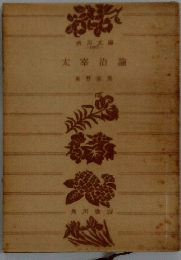 角川文庫
太宰治論
奥野健男
角川書店